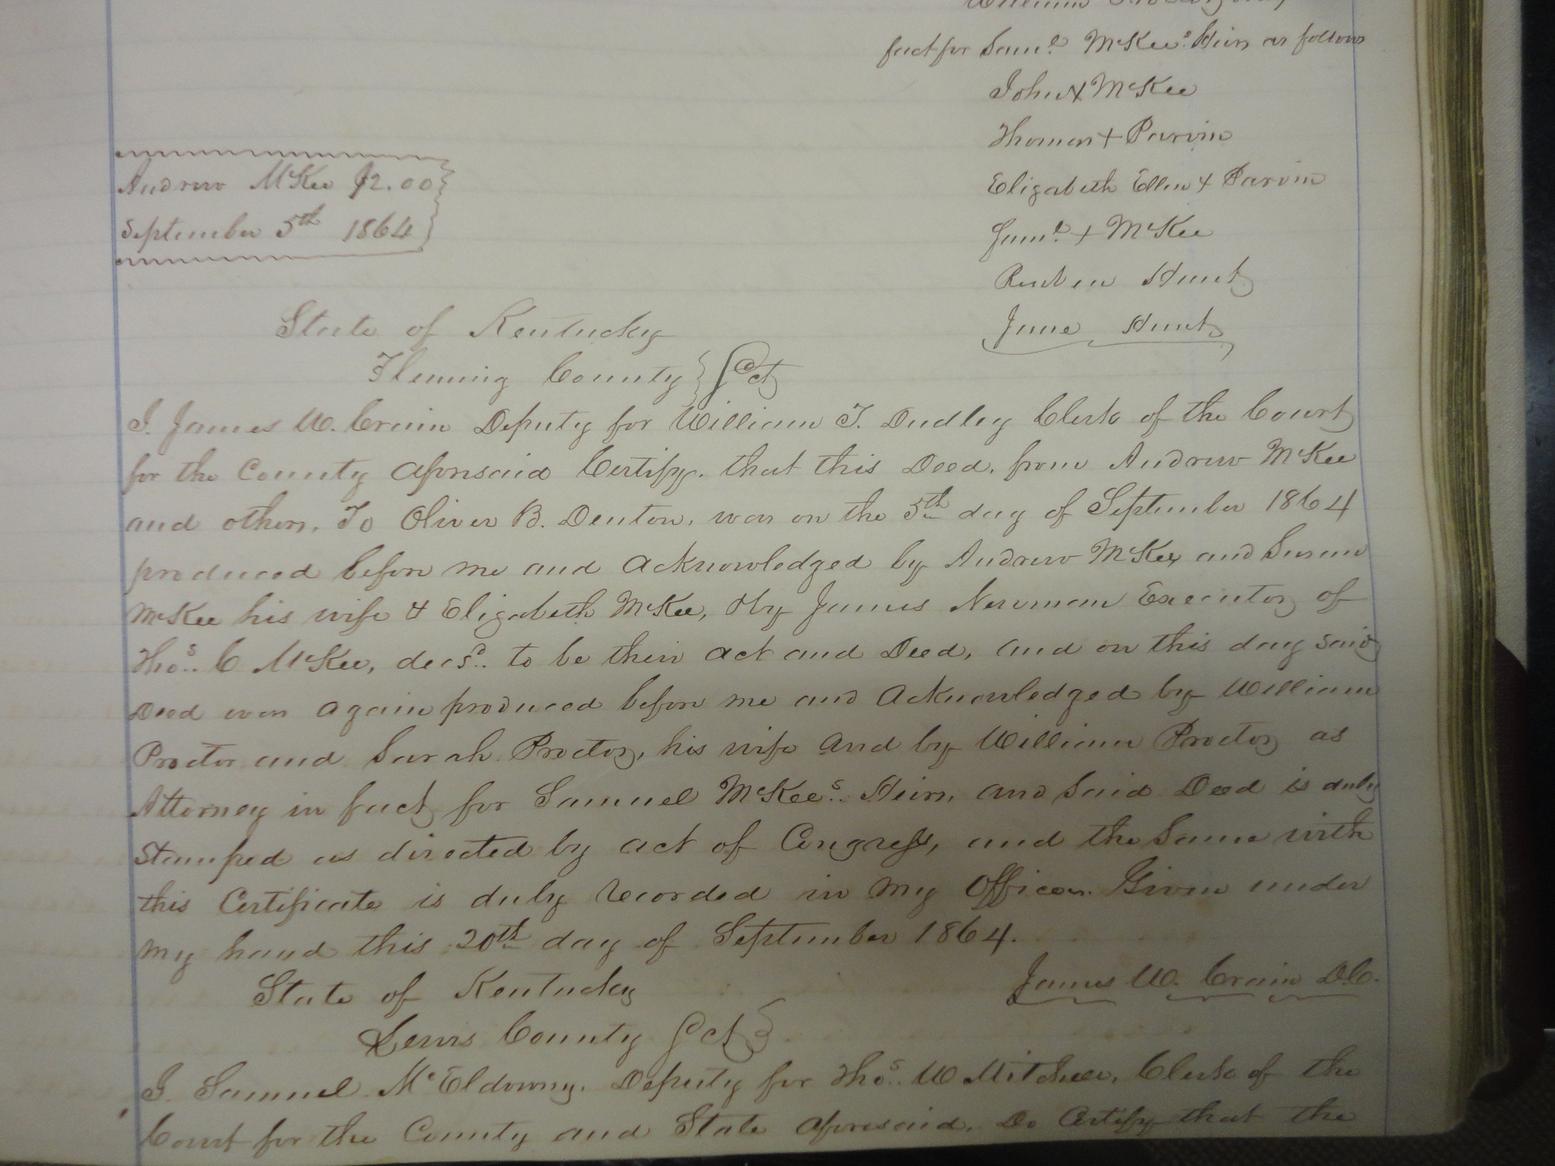 William
fact for Saml. McKee's Heirs as follows
John X McKee
Thomas + Parvin
Elizabeth Ellen + Parvin
Saml. + McKee
Reuben Hunt
Jane Hunt
Andrew McKee $2.00
September 5th 1864
State of Kentucky
Fleming County } Sct
I. James W. Crain Deputy for William T. Dudley Clerk of the Court
for the County aforesaid Certify. that this Deed. from Andrew McKee
and others. To Oliver B. Denton. was on the 5th day of September 1864
produced before me and acknowledged by Andrew McKee and Susan
McKee his wife & Elizabeth McKee, & by James Newman Executor of
Thos. C McKee, decs'd. to be their act and Deed, and on this day said
Deed was again produced before me and acknowledged by William
Proctor and Sarah Proctor, his wife and by William Proctor as
Attorney in fact for Samuel McKee's. Heirs, and said Deed is duly
Stamped as directed by act of Congress, and the same with
this Certificate is duly recorded in my Office. Given under
my hand this 20th day of September 1864.
James W. Crain D.C.
State of Kentucky
Lewis County Sct }
I. Samuel McEldowny. Deputy for Thos. W Mitchell, Clerk of the
Court for the County and State aforesaid. Do Certify that the